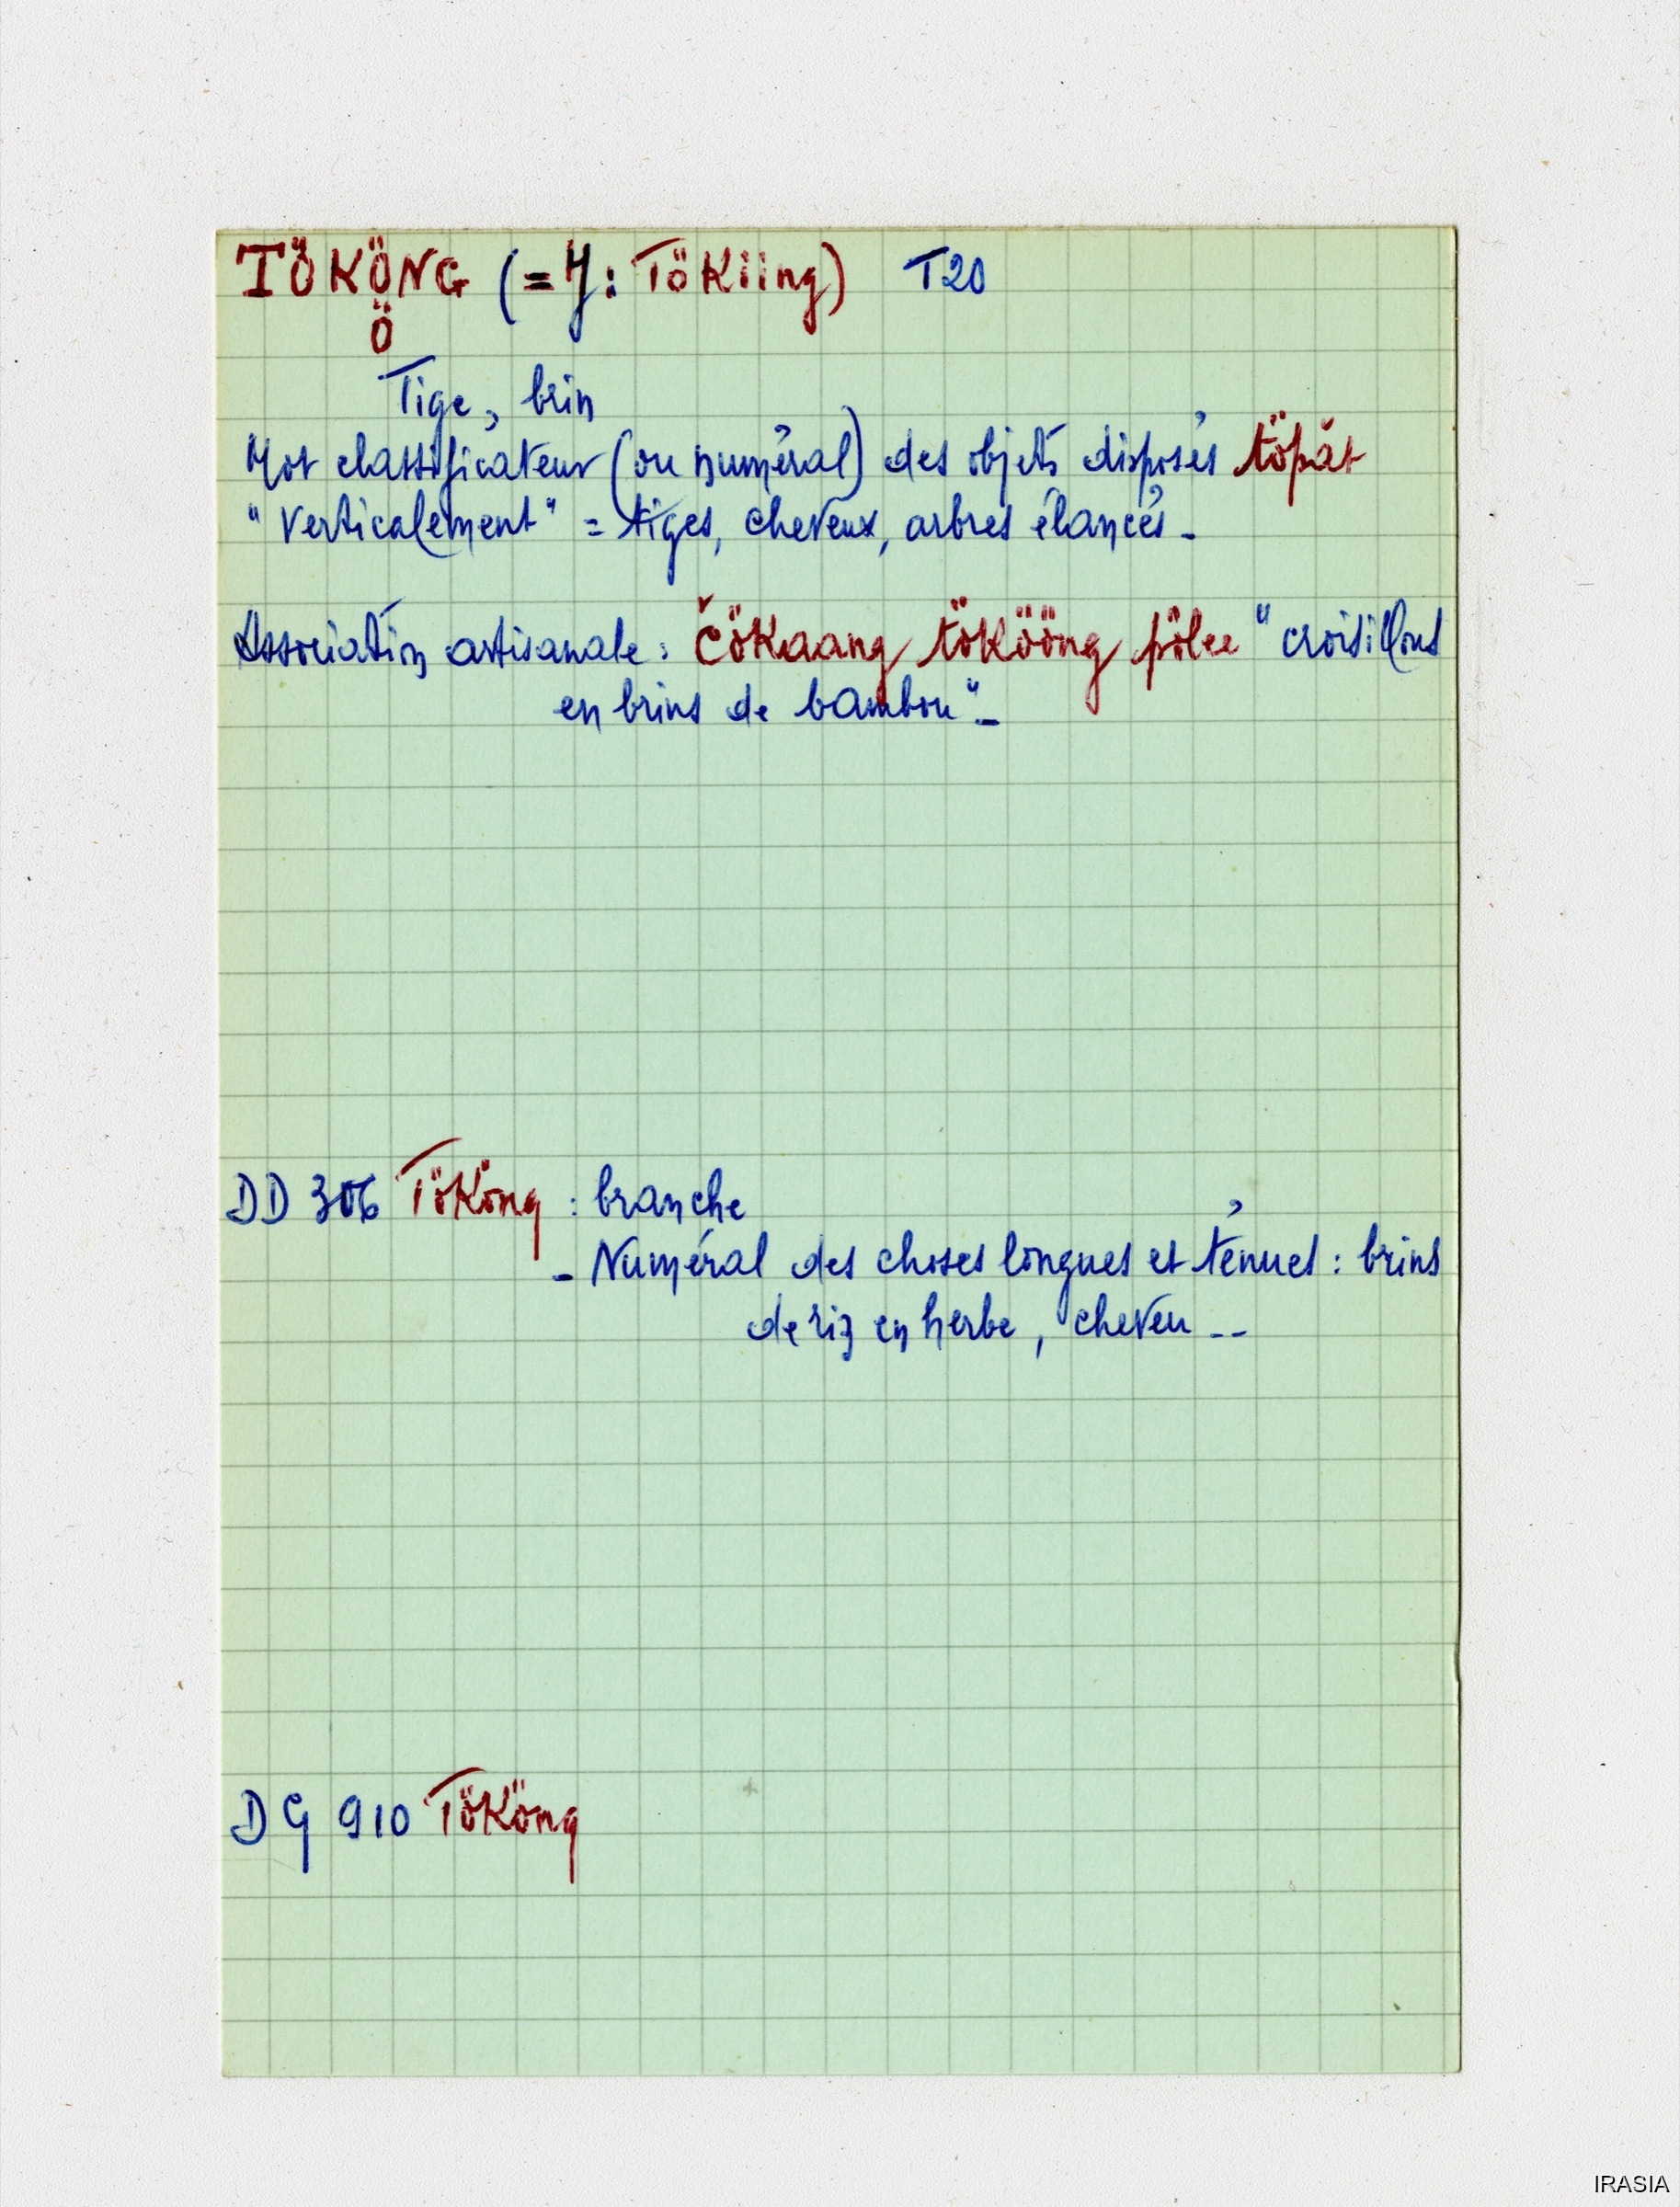 TÖKÖNG (= Y: TöKiing) T20
Ö
Tige, brin
Mot classificateur (ou numéral) des objets disposés töpăt
"Verticalement" = tiges, cheveux, arbres élancés -
Association artisanale: čöKaang töKööng pölee "croisillons
en brins de bambou" -
DD 306 TöKöng : branche
- Numéral des choses longues et ténues : brins
de riz en herbe, cheveu --
DG 910 TöKöng
IRASIA